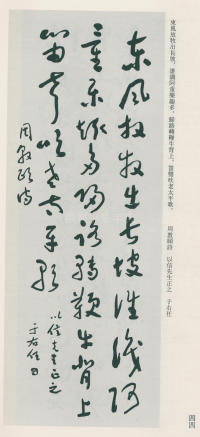 東風放牧出長坡，誰識阿童樂趣多，歸路轉鞭牛背上，笛聲吹老太平歌。
周敦頤詩　以信先生正之　于右任
東風放牧出長坡誰識阿
童樂趣多歸路轉鞭牛背上
笛聲吹老太平歌
周敦頤詩
以信先生正之
于右任
四四